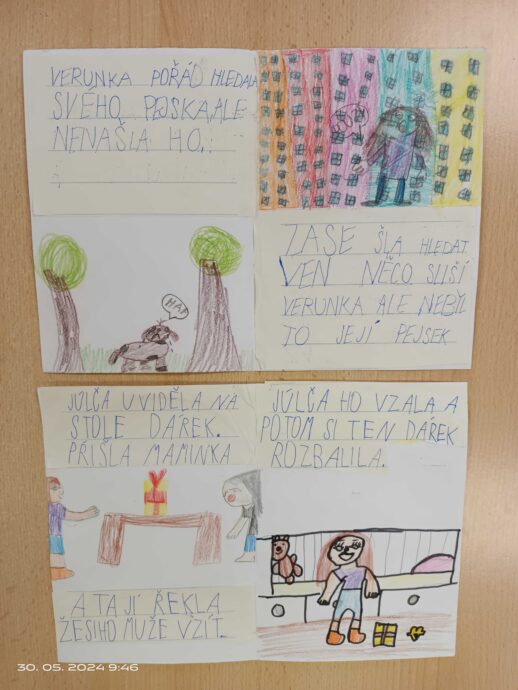 VERUNKA POŘÁD HLEDALA
SVÉHO PEJSKA, ALE
NENAŠLA HO.
HAF
ZASE ŠLA HLEDAT
VEN NĚCO SLIŠÍ
VERUNKA ALE NEBYL
TO JEJÍ PEJSEK
JŮLČA UVIDĚLA NA
STOLE DÁREK.
PŘIŠLA MAMINKA
A TA JÍ ŘEKLA
ŽE SI HO MUŽE VZÍT.
JŮLČA HO VZALA A
POTOM SI TEN DÁREK
ROZBALILA.
30. 05. 2024 9:46